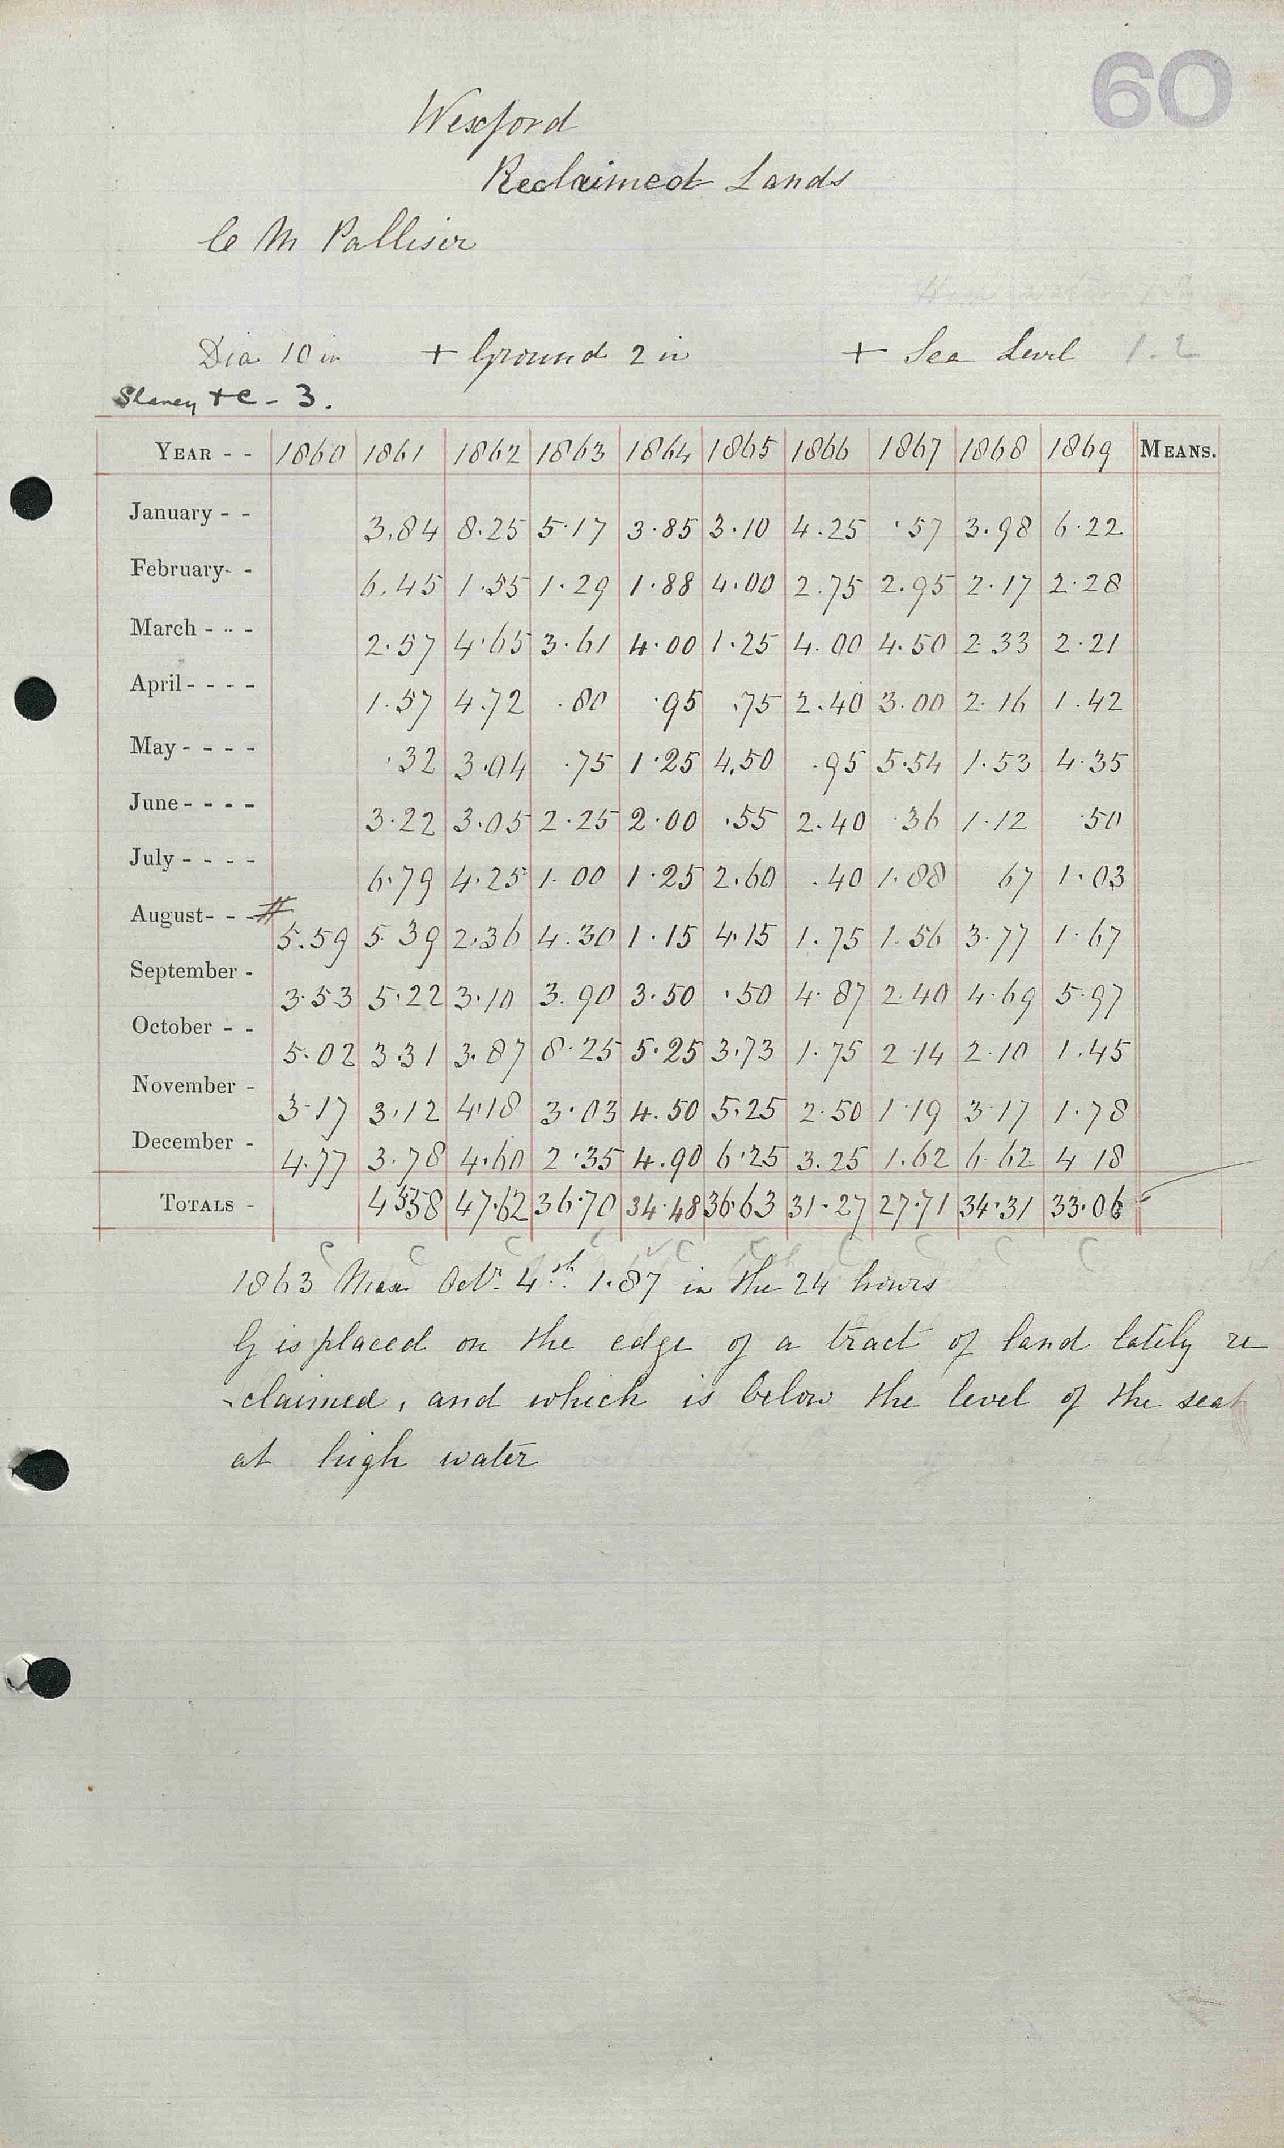 60
Wexford
Reclaimed Lands
C M Palliser
Dia 10 in + Ground 2 in + Sea Level 1.2
Slaney + C - 3.
YEAR - - 1860 1861 1862 1863 1864 1865 1866 1867 1868 1869 MEANS.
January - - 3.84 8.25 5.17 3.85 3.10 4.25 .57 3.98 6.22
February- - 6.45 1.55 1.29 1.88 4.00 2.75 2.95 2.17 2.28
March - - - 2.57 4.65 3.61 4.00 1.25 4.00 4.50 2.33 2.21
April - - - - 1.57 4.72 .80 .95 .75 2.40 3.00 2.16 1.42
May - - - - .32 3.04 .75 1.25 4.50 .95 5.54 1.53 4.35
June - - - - 3.22 3.05 2.25 2.00 .55 2.40 .36 1.12 .50
July - - - - 6.79 4.25 1.00 1.25 2.60 .40 1.88 67 1.03
August- - - # 5.59 5 39 2.36 4.30 1.15 4.15 1.75 1.56 3.77 1.67
September - 3.53 5.22 3.10 3.90 3.50 .50 4.87 2.40 4.69 5.97
October - - 5.02 3.31 3.87 8.25 5.25 3.73 1.75 2.14 2.10 1.45
November - 3.17 3.12 4.18 3.03 4.50 5.25 2.50 1.19 3.17 1.78
December - 4.77 3.78 4.60 2.35 4.90 6.25 3.25 1.62 6.62 4 18
TOTALS - 45.58 47.62 36.70 34.48 36.63 31.27 27.71 34.31 33.06
1863 Max Octr. 4th. 1.87 in the 24 hours
G is placed on the edge of a tract of land lately re
-claimed, and which is below the level of the sea
at high water